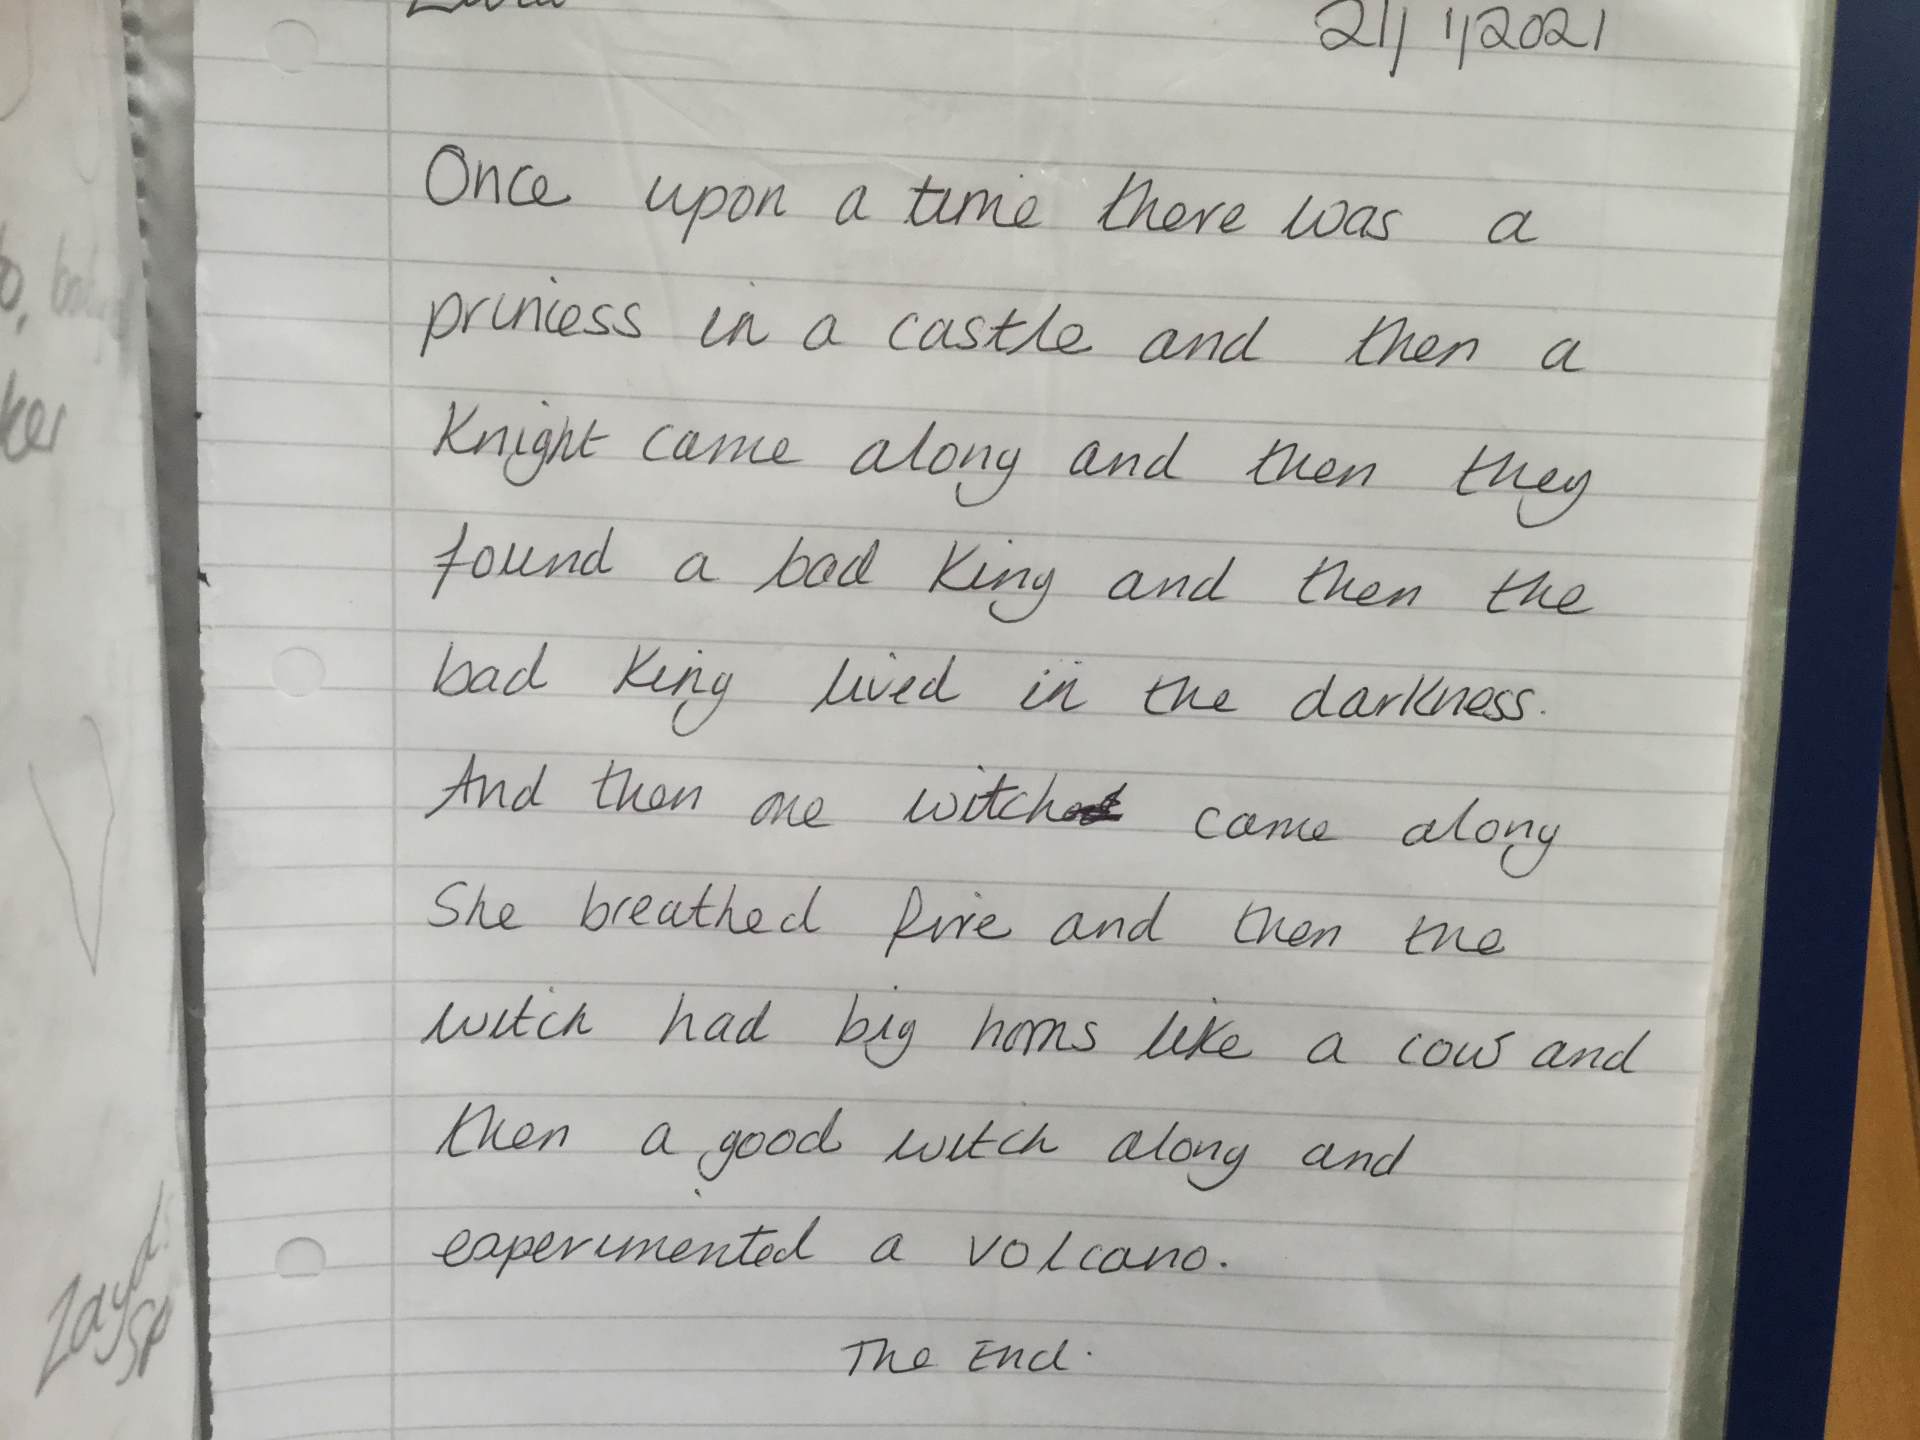 21/1/2021
Once upon a time there was a
princess in a castle and then a
Knight came along and then they
found a bad King and then the
bad King lived in the darkness.
And then one witch came along
She breathed fire and then the
witch had big horns like a cow and
then a good witch along and
experimented a volcano.
The End.
ker
Zayd.